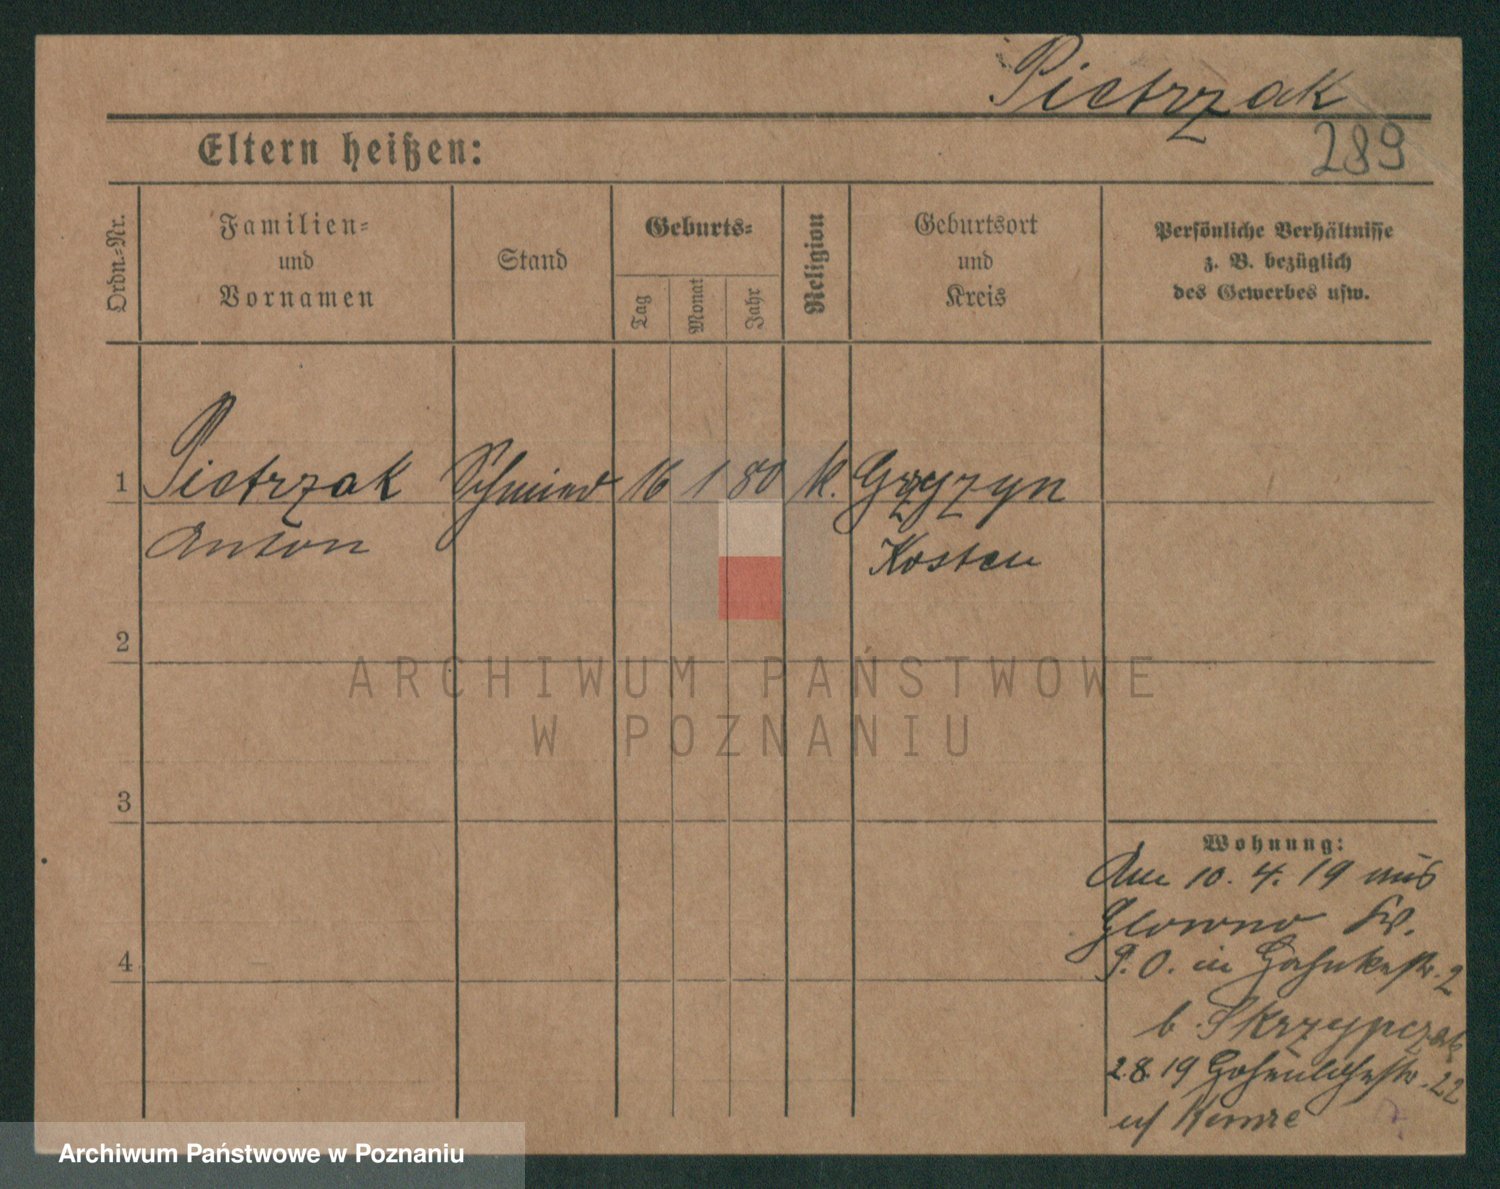 Pietrzak
289
Eltern heißen:
Ordn.-Nr.
Familien-
und
Vornamen
Stand
Geburts-
Tag
Monat
Jahr
Religion
Geburtsort
und
Kreis
Persönliche Verhältnisse
z. B. bezüglich
des Gewerbes usw.
1 Pietrzak Schmied 16 1 80 k. Gryżyn
Anton Kosten
2
3
4
Wohnung:
Am 10. 4. 19 aus
Glowno Kr.
P. O. in 2
b. Skrzypczak
2.8.19 22
ARCHIWUM PAŃSTWOWE
W POZNANIU
Archiwum Państwowe w Poznaniu